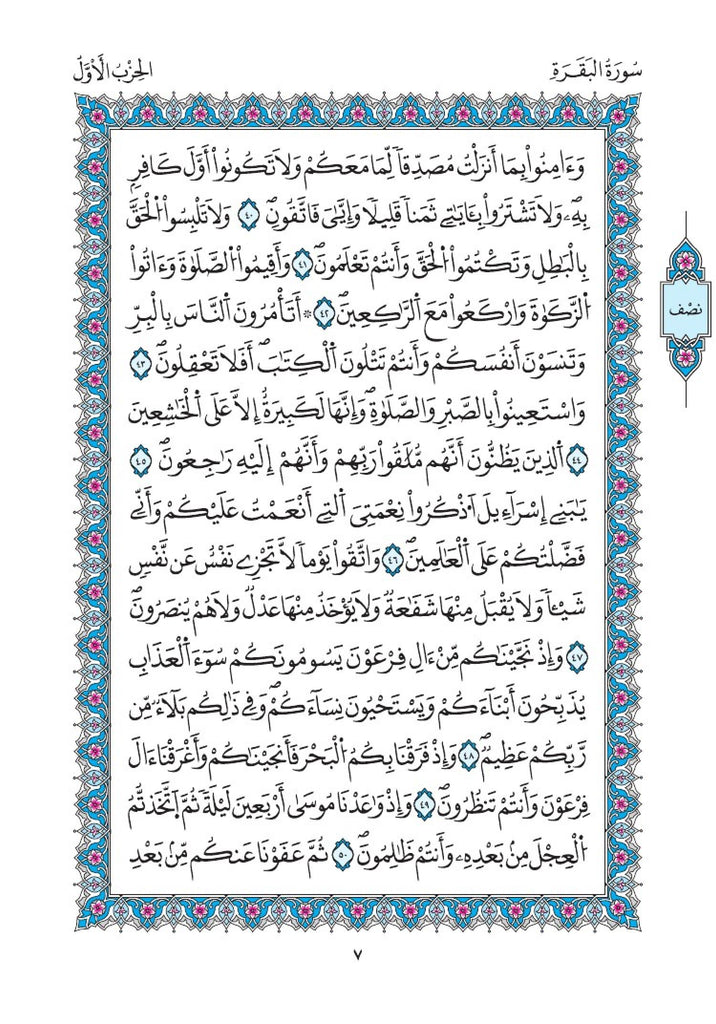 سُورَةُ البَقَرَةِ
الحِزْبُ الأَوَّلُ
وَءَامِنُواْ بِمَا أَنزَلْتُ مُصَدِّقاٗ لِّمَا مَعَكُمْ وَلَا تَكُونُواْ أَوَّلَ كَافِرِۢ
بِهِۦ وَلَا تَشْتَرُواْ بِـَٔايَٰتِے ثَمَناٗ قَلِيلاٗ وَإِيَّٰىَ فَاتَّقُونِۖ ٤٠ وَلَا تَلْبِسُواْ اُ۬لْحَقَّ
بِالْبَٰطِلِ وَتَكْتُمُواْ اُ۬لْحَقَّ وَأَنتُمْ تَعْلَمُونَۖ ٤١ وَأَقِيمُواْ اُ۬لصَّلَوٰةَ وَءَاتُواْ
اُ۬لزَّكَوٰةَ وَارْكَعُواْ مَعَ اَ۬لرَّٰكِعِينَۖ ٤٢ ۞ أَتَأْمُرُونَ اَ۬لنَّاسَ بِالْبِرِّ
وَتَنسَوْنَ أَنفُسَكُمْ وَأَنتُمْ تَتْلُونَ اَ۬لْكِتَٰبَۖ أَفَلَا تَعْقِلُونَۖ ٤٣
وَاسْتَعِينُواْ بِالصَّبْرِ وَالصَّلَوٰةِۖ وَإِنَّهَا لَكَبِيرَةٌ إِلَّا عَلَى اَ۬لْخَٰشِعِينَ
٤٤ اَ۬لذِينَ يَظُنُّونَ أَنَّهُم مُّلَٰقُواْ رَبِّهِمْ وَأَنَّهُمْ إِلَيْهِ رَٰجِعُونَۖ ٤٥
يَٰبَنِے إِسْرَآءِيلَ اَ۟ذْكُرُواْ نِعْمَتِيَ اَ۬لتِے أَنْعَمْتُ عَلَيْكُمْ وَأَنِّے
فَضَّلْتُكُمْ عَلَى اَ۬لْعَٰلَمِينَۖ ٤٦ وَاتَّقُواْ يَوْماٗ لَّا تَجْزِے نَفْسٌ عَن نَّفْسٖ
شَيْـٔاٗ وَلَا يُقْبَلُ مِنْهَا شَفَٰعَةٞ وَلَا يُؤْخَذُ مِنْهَا عَدْلٞ وَلَا هُمْ يُنصَرُونَۖ
٤٧ وَإِذْ نَجَّيْنَٰكُم مِّنْ ءَالِ فِرْعَوْنَ يَسُومُونَكُمْ سُوٓءَ اَ۬لْعَذَابِ
يُذَبِّحُونَ أَبْنَآءَكُمْ وَيَسْتَحْيُونَ نِسَآءَكُمْۖ وَفِے ذَٰلِكُم بَلَآءٞ مِّن
رَّبِّكُمْ عَظِيمٞۖ ٤٨ وَإِذْ فَرَقْنَا بِكُمُ اُ۬لْبَحْرَ فَأَنجَيْنَٰكُمْ وَأَغْرَقْنَا ءَالَ
فِرْعَوْنَ وَأَنتُمْ تَنظُرُونَۖ ٤٩ وَإِذْ وَٰعَدْنَا مُوسَىٰ أَرْبَعِينَ لَيْلَةٗ ثُمَّ اَ۪تَّخَذتُّمُ
اُ۬لْعِجْلَ مِنۢ بَعْدِهِۦ وَأَنتُمْ ظَٰلِمُونَۖ ٥٠ ثُمَّ عَفَوْنَا عَنكُم مِّنۢ بَعْدِ
نصف
٧